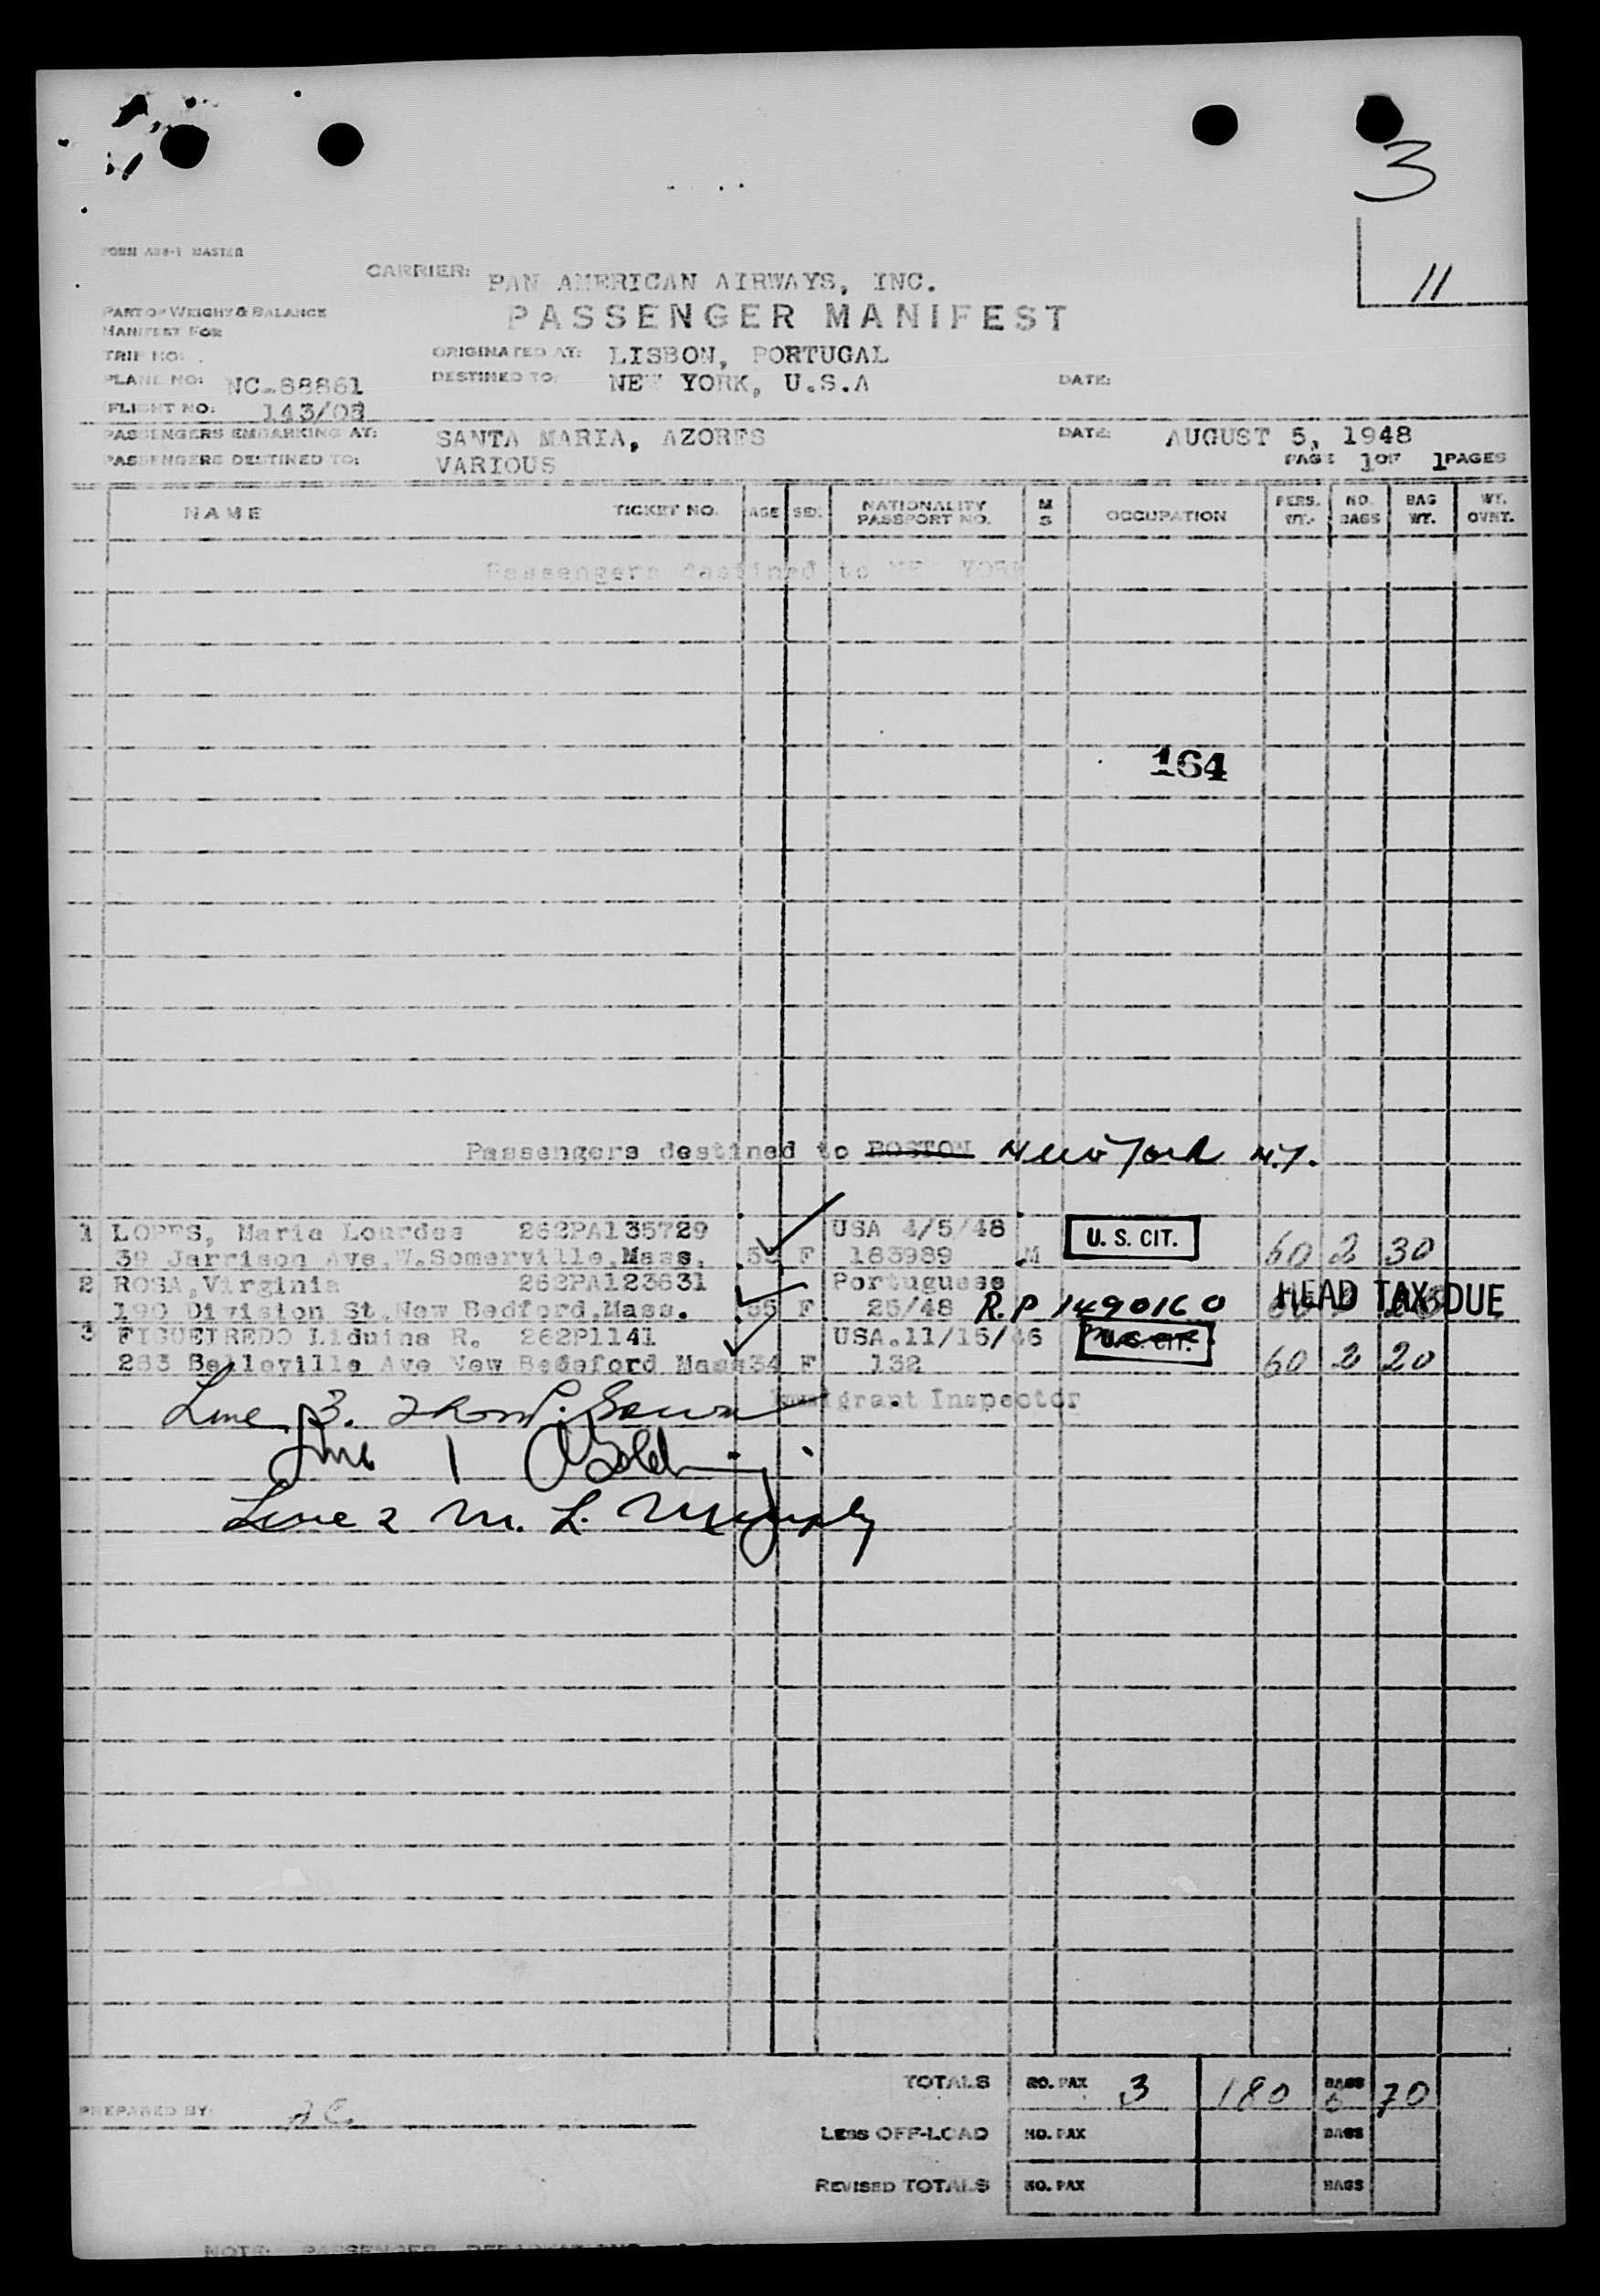 3
11
FORM MASTER
CARRIER: PAN AMERICAN AIRWAYS, INC.
PASSENGER MANIFEST
PART OF WEIGHT & BALANCE
MANIFEST FOR
TRIP NO:
ORIGINATED AT: LISBON, PORTUGAL
PLANE NO: NC-88861 DESTINED TO: NEW YORK, U.S.A DATE:
FLIGHT NO: 143/03
PASSENGERS EMBARKING AT: SANTA MARIA, AZORES DATE: AUGUST 5, 1948
PASSENGERS DESTINED TO: VARIOUS PAGE 1 OF 1 PAGES
NAME TICKET NO. AGE SEX NATIONALITY PASSPORT NO. M S OCCUPATION PERS. WT. NO. BAGS BAG WT. WT. OVHT.
Passengers destined to NEW YORK
164
Passengers destined to BOSTON New York N.Y.
1 LOPES, Maria Lourdes 262PA135729 USA 4/5/48 U. S. CIT.
39 Jarrison Ave. W. Somerville, Mass. F 183989 M 60 2 30
2 ROSA, Virginia 262PA123631 Portuguese HEAD TAX DUE
190 Division St. New Bedford, Mass. 55 F 25/48 R.P 1490160
3 FIGUEIREDO Liduina R. 262P1141 USA. 11/15/46 U.S. CIT.
283 Belleville Ave New Bedeford Mass 34 F 132 60 2 20
Line 3. Immigrant Inspector
Line 1
Line 2 M. L. Murphy
TOTALS NO. PAX 3 180 BAGS 6 70
PREPARED BY:
LESS OFF-LOAD NO. PAX BAGS
REVISED TOTALS NO. PAX BAGS
NOTE: PASSENGER